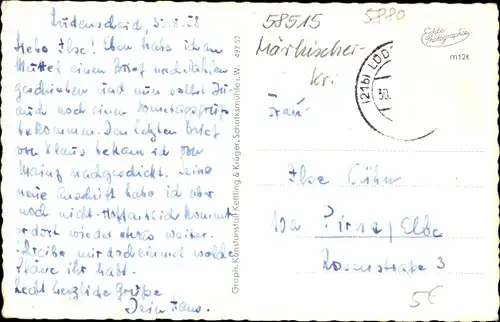 Lüdenscheid,
Liebe Ilse! Eben habe ich an
Muttel einen Brief nach Köhlen
geschrieben und nun sollst Du
auch noch einen Sonntagsgruß
bekommen. Den letzten Brief
von Klaus bekam ich von
Mainz nachgeschickt. Seine
neue Anschrift habe ich aber
noch nicht. Hoffentlich kommt
er dort wieder etwas weiter.
Schreibe mir doch einmal welche
Pläne ihr habt.
Recht herzliche Grüße
Dein Hans.
Graph. Kunstanstalt Kettling & Krüger, Schalksmühle i. W. 492 52
58515
5880
Märkischer-
Kr.
Echte
Photographie
(21b) LÜD
30.
Frau
Ilse
10a Pirna/Elbe
Rosenstraße 3
5€